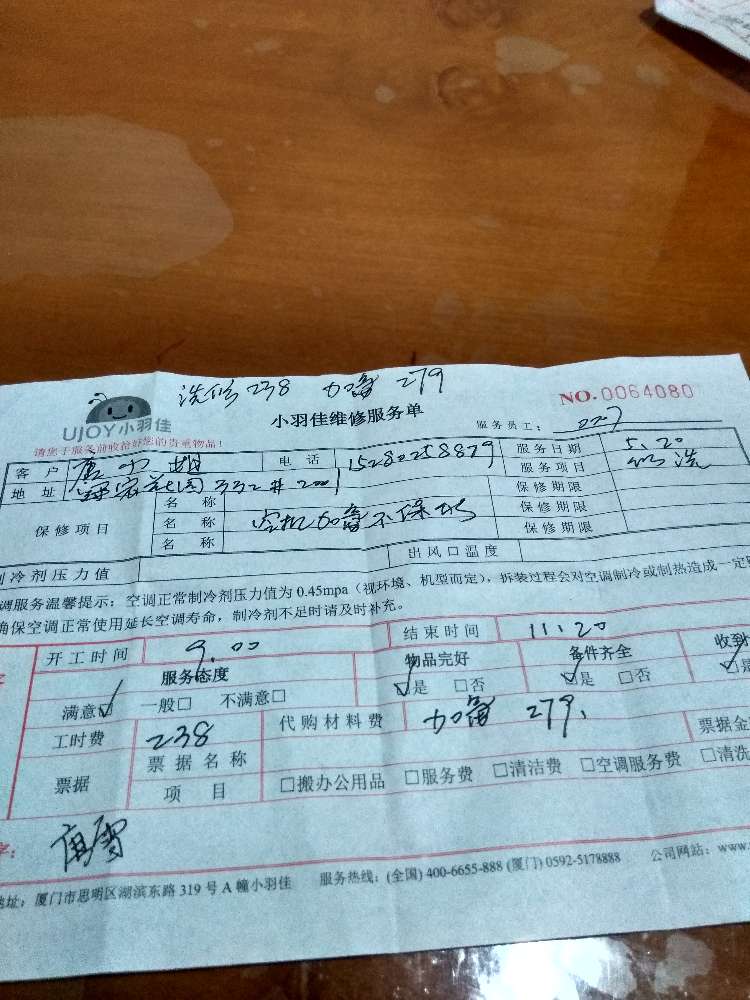 238 279
NO.0064080
UJOY小羽佳
小羽佳维修服务单
服务员工: 227
请您于服务前收拾好您的贵重物品!
客户 唐 电话 15280258879 服务日期 5.20
服务项目 洗
地址 332# 2001
保修项目 名称 保修期限
名称 空机加 不保 保修期限
名称 保修期限
冷剂压力值 出风口温度
调服务温馨提示:空调正常制冷剂压力值为 0.45mpa(视环境、机型而定),拆装过程会对空调制冷或制热造成一定
确保空调正常使用延长空调寿命,制冷剂不足时请及时补充。
开工时间 9.00 结束时间 11:20
服务态度 物品完好 备件齐全 收到
满意☑ 一般□ 不满意□ ☑是 □否 ☑是 □否 ☑是
工时费 238 代购材料费 279.
票据 票据名称 票据金
项目 □搬办公用品 □服务费 □清洁费 □空调服务费 □清洗
字:
地址:厦门市思明区湖滨东路 319 号 A 幢小羽佳 服务热线:(全国) 400-6655-888 (厦门) 0592-5178888 公司网站:www.